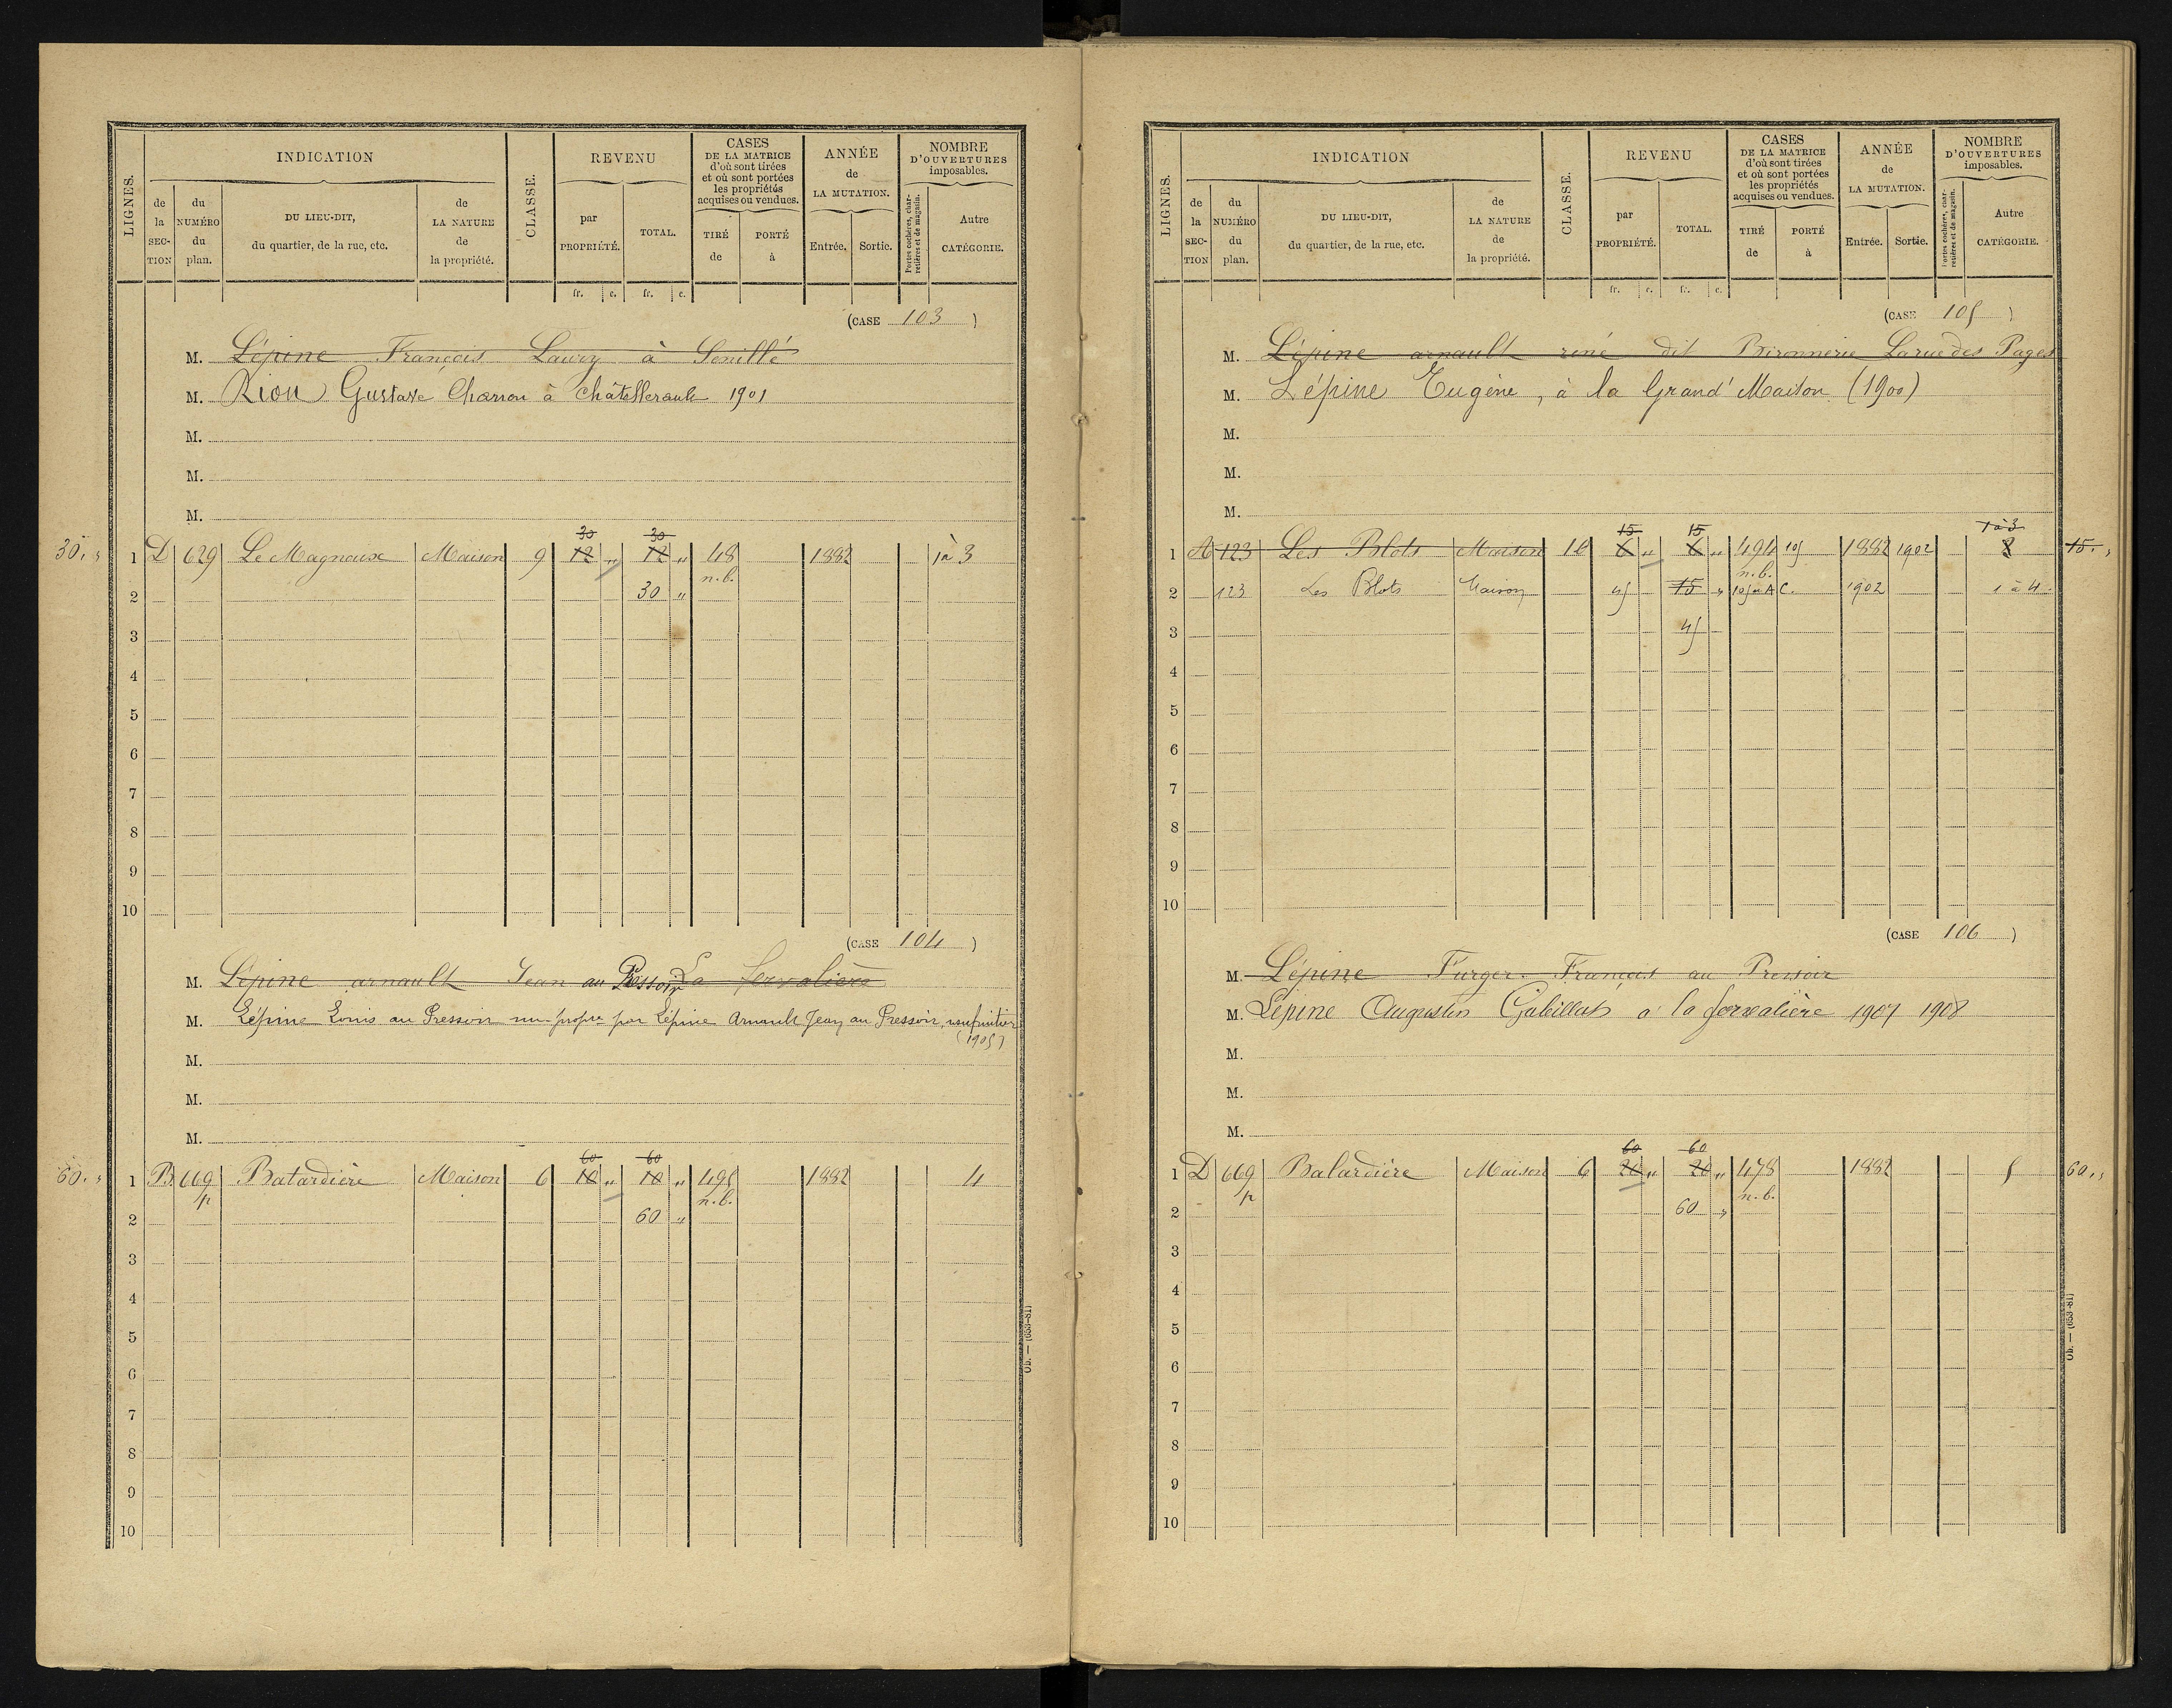 LIGNES.
INDICATION
de la SECTION
du NUMÉRO du plan.
DU LIEU-DIT, du quartier, de la rue, etc.
de LA NATURE de la propriété.
CLASSE.
REVENU
par PROPRIÉTÉ.
TOTAL.
CASES DE LA MATRICE d'où sont tirées et où sont portées les propriétés acquises ou vendues.
TIRÉ de
PORTÉ à
ANNÉE de LA MUTATION.
Entrée.
Sortie.
NOMBRE D'OUVERTURES imposables.
Portes cochères, charretières et de magasin.
Autre CATÉGORIE.
fr. c. fr. c.
(CASE 103)
M. Lépine François Laury à Senillé
M. Rion Gustave Charron à Châtellerault 1901
M.
M.
M.
30 30
30. " 1 D 629 Le Magnoux Maison 9 12 " 12 " 48 1882 1à 3
n.b.
2 30 "
3
4
5
6
7
8
9
10
(CASE 104)
M. Lépine arnault Jean au Pressoir La fervalière
M. Lépine Louis au Pressoir nu-propre par Lépine Arnault Jean au Pressoir, usufruitier
(1905)
M.
M.
M.
60 60
60. " 1 B 669 Batardière Maison 6 10 " 10 " 495 1882 4
p n.b.
2 60 "
3
4
5
6
7
8
9
10
Ob. — (653-81)
LIGNES.
INDICATION
de la SECTION
du NUMÉRO du plan.
DU LIEU-DIT, du quartier, de la rue, etc.
de LA NATURE de la propriété.
CLASSE.
REVENU
par PROPRIÉTÉ.
TOTAL.
CASES DE LA MATRICE d'où sont tirées et où sont portées les propriétés acquises ou vendues.
TIRÉ de
PORTÉ à
ANNÉE de LA MUTATION.
Entrée.
Sortie.
NOMBRE D'OUVERTURES imposables.
Portes cochères, charretières et de magasin.
Autre CATÉGORIE.
fr. c. fr. c.
(CASE 105)
M. Lépine arnault réné dit Bironnerie La rue des Pages
M. Lépine Eugène, à la Grand' Maison (1900)
M.
M.
M.
15 15 1 à 3
1 A 123 Les Blots Maison 10 6 " 6 " 494 105 1882 1902 2 15. "
n.b.
2 123 Les Blots Maison 45 15 " 105 n AC. 1902 1 à 4
3 45
4
5
6
7
8
9
10
(CASE 106)
M. Lépine Furger François au Pressoir
M. Lépine Augustin Gabillat à la fervalière 1907 1908
M.
M.
M.
60 60
1 D 669 Batardière Maison 6 20 " 20 " 478 1882 5 60. "
p n.b.
2 60 "
3
4
5
6
7
8
9
10
Ob. — (653-81)